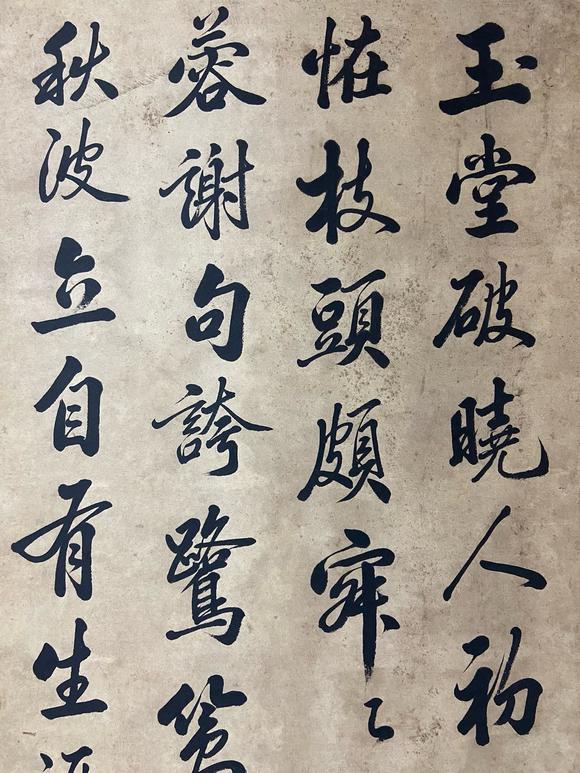 玉堂破曉人初
怪枝頭頗寂〻
蓉謝句誇鷺
秋波立自有生